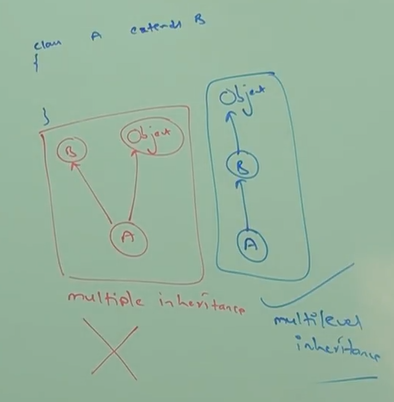 class A extends B
{
}
Object
B
A
multiple inheritance
Object
B
A
multilevel
inheritance